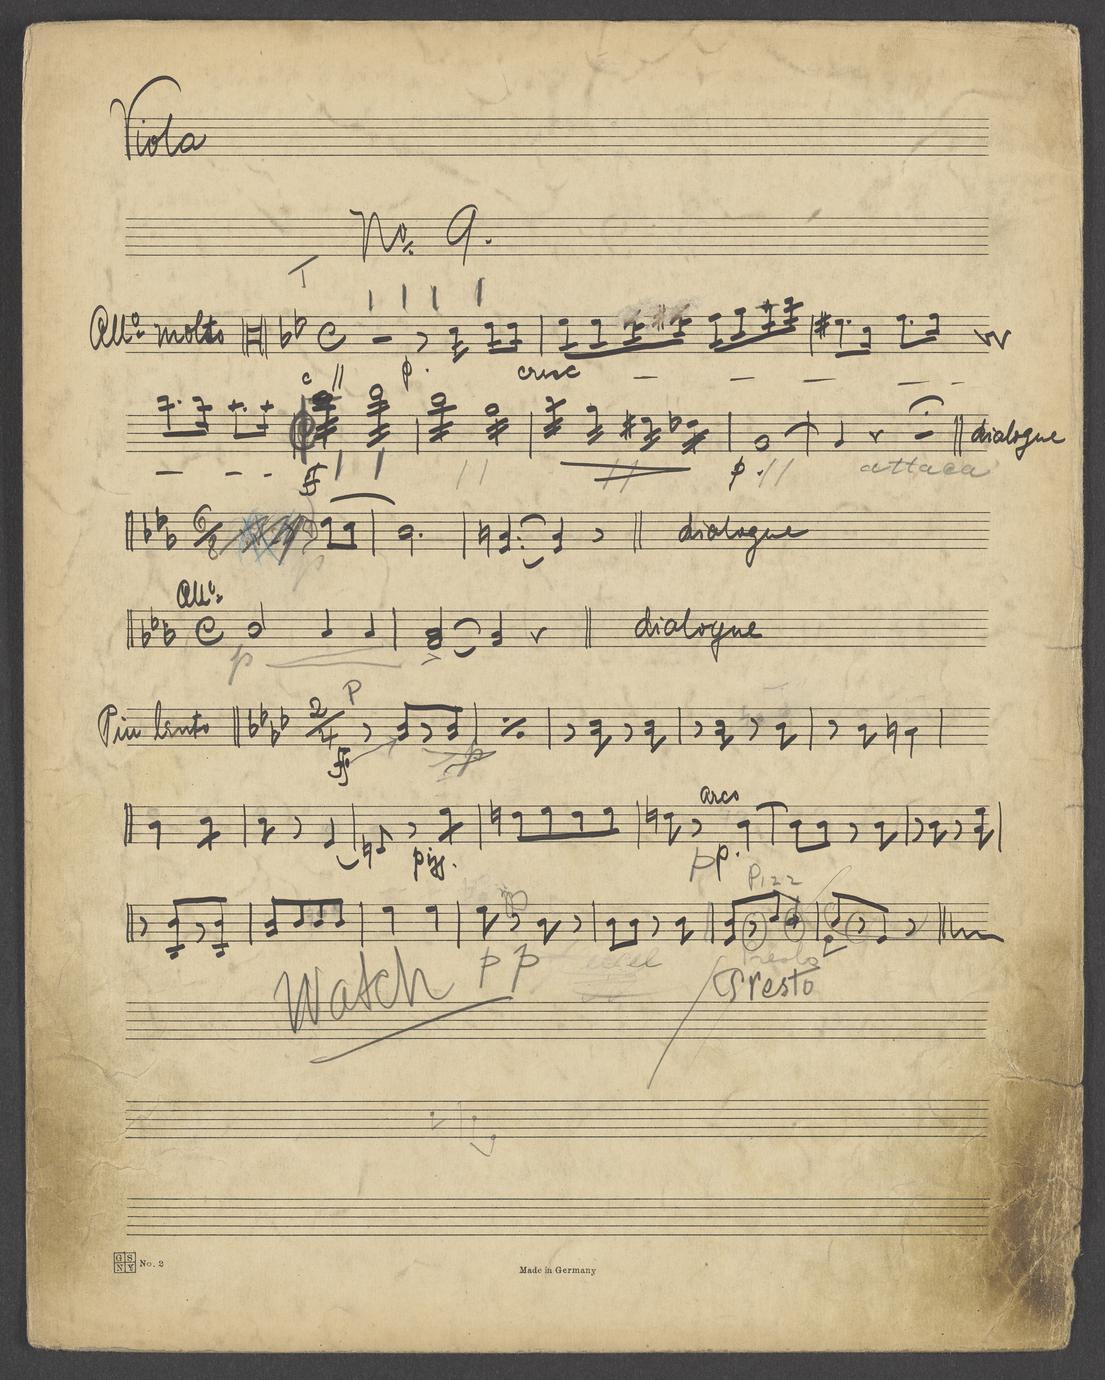 Viola
No. 9.
All.o molto
p. cresc
ff p. attaca dialogue
dialogue
All.o
p dialogue
Piu lento 2/4 P
ff p
arco
pizz. pp.
Pizz
Watch pp Presto
GSNY No. 2 Made in Germany